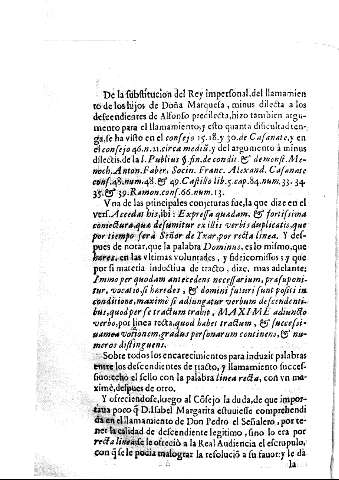 De la substitucion del Rey impersonal, del llamamien
to de los hijos de Doña Marquesa, minus dilecta a los
descendientes de Alfonso predilecta, hizo tambien argu
mento para el llamamiento, y esto quanta dificultad ten-
ga, se ha visto en el consejo 15. 18. y 30. de Casanate, y en
el consejo 46. n. 11. circa mediū, y del argumento à minus
dilectis, de la l. Publius §. fin. de condit. & demonst. Me-
noch. Anton. Faber. Socin. Franc. Alexand. Casanate
conf. 48. num. 48. & 49. Castillo lib. 5. cap. 84. num. 33. 34
35. & 39. Ramon. conf. 66. num. 13.
Vna de las principales conjeturas fue, la que dize en el
vers. Accedat his, ibi: Expressa quadam, & fortissima
coniectura, qua desumitur ex illis verbis duplicatis, que
por tiempo serà Señor de Yxar, por recta linea. Y des-
pues de notar, que la palabra Dominus, es lo mismo, que
hæres, en las vltimas voluntades, y fideicomissos y que
por si materia inductiua de tracto, dize, mas adelante:
Immo per quodam antecedens necessarium, prasuponi-
tur, vocatio, si heredes, & domini futuri sunt positi in
conditione, maximè si adiungatur verbum descendenti-
bus, quod per se tractum trahit, MAXIME adiuncto
verbo, por linea recta, quod habet tractum, & successi-
uam vocationem, gradus personarum continens, & nu-
meros distinguens.
Sobre todos los encarecimientos para induzir palabras
entre los descendientes de tracto, y llamamiento succes-
siuo: echo el sello con la palabra linea recta, con vn ma-
ximè, despues de otro.
Y ofreciendose, luego al Cōsejo la duda, de que impor-
taua poco q̄ D. Isabel Margarita estuuiesse comprehendi
da en el llamamiento de Don Pedro el Señalero, por te-
ner la calidad de descendiente legitimo, sino lo era por
recta linea se le ofreciò a la Real Audiencia el escrupulo,
con q̄ se le podia malograr la resoluciō a su fauor; y le dà
la